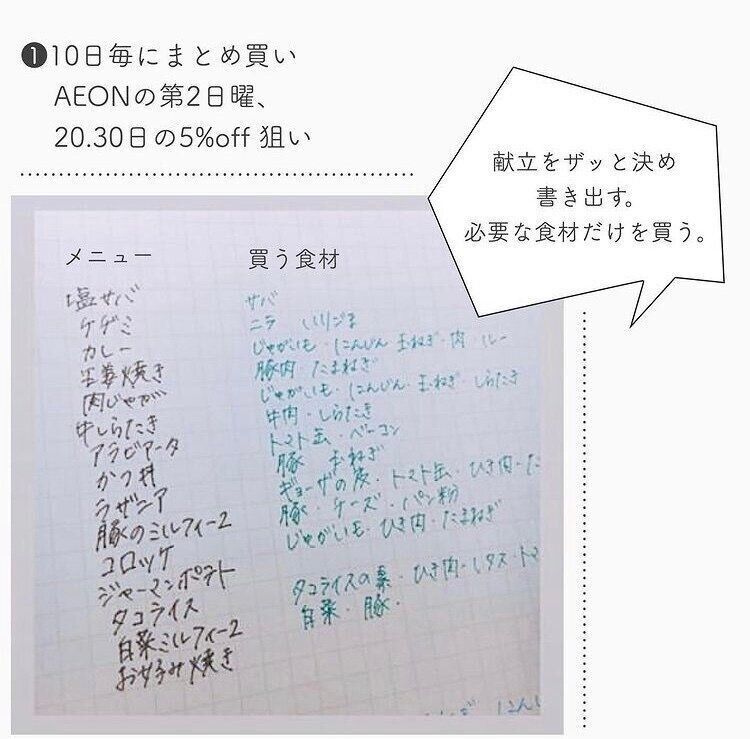 ❶10日毎にまとめ買い
AEONの第2日曜、
20.30日の5%off 狙い
献立をザッと決め
書き出す。
必要な食材だけを買う。
メニュー
塩サバ
ケヂミ
カレー
生姜焼き
肉じゃが
牛しらたき
アラビアータ
かつ丼
ラザニア
豚のミルフィーユ
コロッケ
ジャーマンポテト
タコライス
白菜ミルフィーユ
お好み焼き
買う食材
サバ
ニラ いりごま
じゃがいも・にんじん 玉ねぎ・肉・ルー
豚肉・たまねぎ
じゃがいも・にんじん・玉ねぎ・しらたき
牛肉・しらたき
トマト缶・ベーコン
豚 玉ねぎ
ギョーザの皮・トマト缶・ひき肉・た
豚・チーズ・パン粉
じゃがいも・ひき肉・たまねぎ
タコライスの素・ひき肉・レタス・トマ
白菜・豚・
にんじ